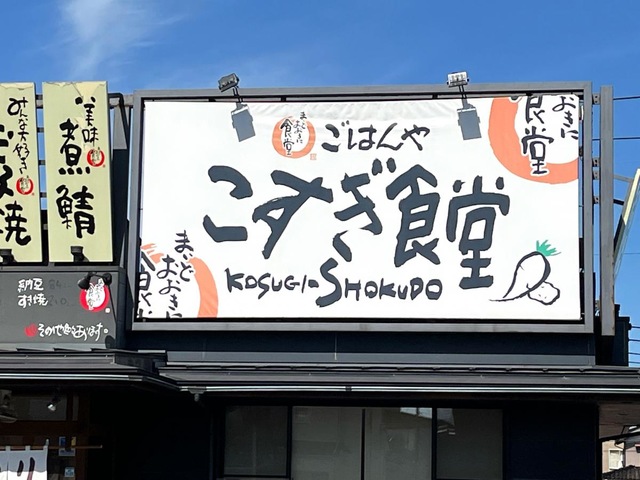 みんな大好き
美味
煮鯖
まいど
おおきに
食堂
ごはんや
こすぎ食堂
KOSUGI-SHOKUDO
おおきに
食堂
まいど
おおきに
納豆
すき焼